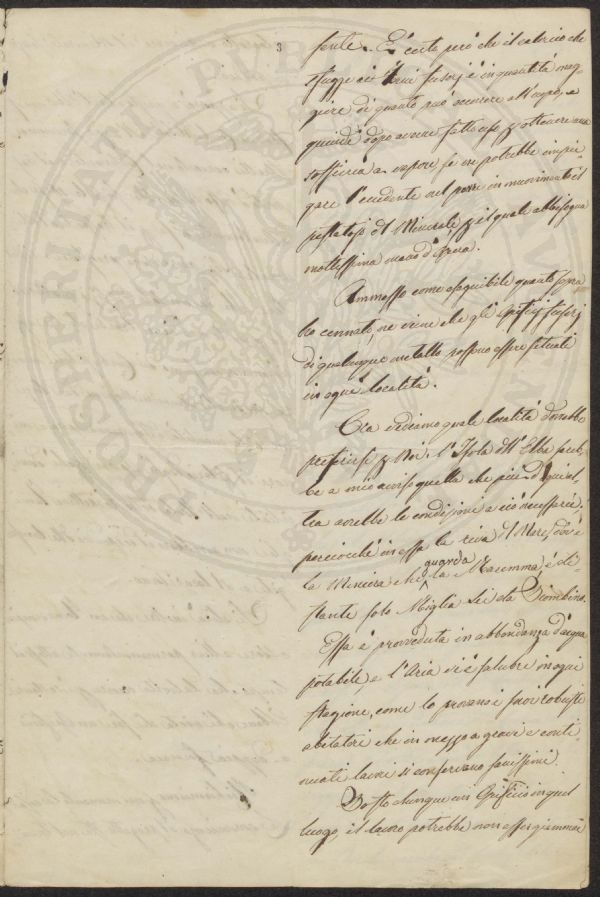 3
fente. E' certo però che il calorico che
sfugge ai Forni fusorj è in quantità mag-
giore di quanto può occorrere all'uopo, e
quindi dopo averne fatto uso p ottenere una
soffieria a vapore se ne potrebbe impie-
gare l'eccedente nel porre in movimento il
pestatojo del Minerale p il quale abbisogna
moltissima mano d'Opera.
Ammesso come eseguibile quanto sopra
ho cennato, ne viene che gli Opifizj fusorj
di qualunque metallo possono essere situati
in ogni località.
Ora vediamo quale località dovrebbe
preferirsi p Noi. L'Isola dell'Elba sareb-
be a mio avviso quella che più di qualun-
tra avrebbe le condizioni a ciò necessarie;
perciocchè in essa la riva del Mare, dov'è
la Miniera che guarda la Maremma, è di-
stante solo Miglia sei da Piombino.
Essa è provveduta in abbondanza d'acqua
potabile, e l'Aria vi è salubre in ogni
stagione, come lo provano i suoi robusti
abitatori che in mezzo a gravi e conti-
nuati lavori si conservano sanissimi.
Posto dunque un Opificio in quel
luogo, il lavoro potrebbe non esser giammai